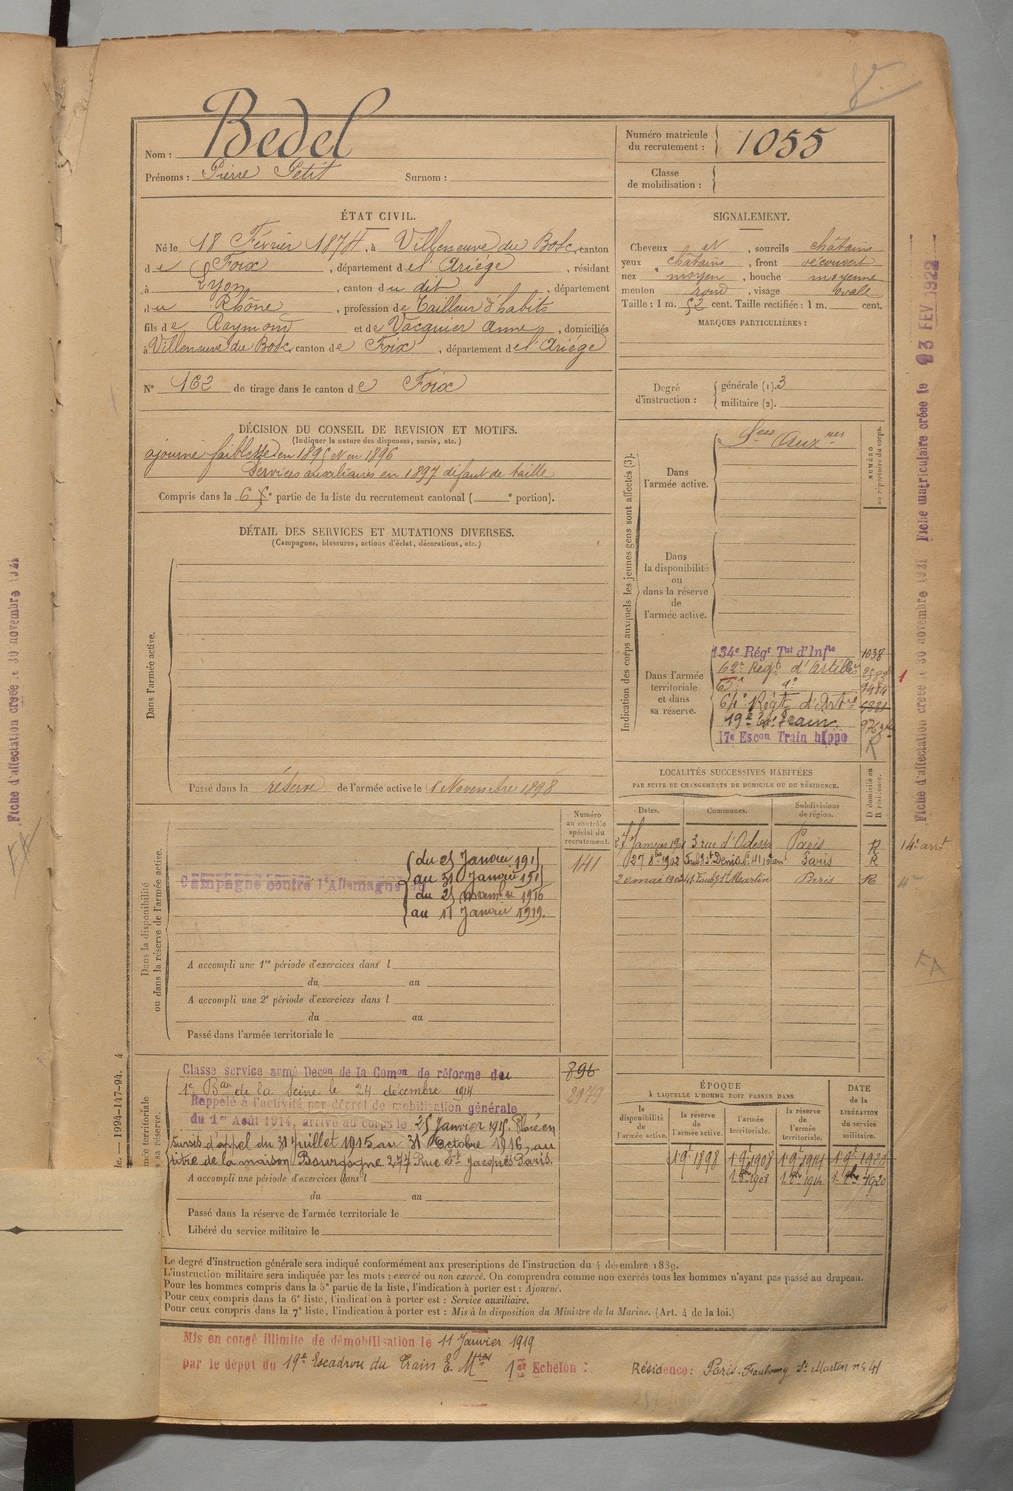 Bedel
Nom :
Prénoms : Pierre Petit Surnom :
Numéro matricule du recrutement : 1055
Classe de mobilisation :
ÉTAT CIVIL.
Né le 18 Février 1874, à Villeneuve du Bosc, canton
de Foix, département de l'Ariège, résidant
à Lyon, canton du dit, département
du Rhône, profession de Tailleur d'habits
fils de Raymond et de Vacquier Anne, domiciliés
à Villeneuve du Bosc, canton de Foix, département de l'Ariège
N° 162 de tirage dans le canton de Foix
SIGNALEMENT.
Cheveux , sourcils châtains
yeux châtains, front découvert
nez moyen, bouche moyenne
menton rond, visage ovale
Taille : 1 m. 52 cent. Taille rectifiée : 1 m. cent.
MARQUES PARTICULIÈRES :
Degré d'instruction : générale (1). 3
militaire (2).
DÉCISION DU CONSEIL DE REVISION ET MOTIFS.
(Indiquer la nature des dispenses, sursis, etc.)
ajourné faiblesse en 1895 et en 1896
Services auxiliaires en 1897 défaut de taille
Compris dans la 6e partie de la liste du recrutement cantonal ( e portion).
DÉTAIL DES SERVICES ET MUTATIONS DIVERSES.
(Campagnes, blessures, actions d'éclat, décorations, etc.)
Dans l'armée active.
Passé dans la réserve de l'armée active le 1 Novembre 1898
Indication des corps auxquels les jeunes gens sont affectés (3).
NUMÉRO au répertoire du corps.
Dans l'armée active.
Sces Auxres
Dans la disponibilité ou dans la réserve de l'armée active.
Dans l'armée territoriale et dans sa réserve.
134e Régt Tal d'Infie 1038
62e Régt d'Artillie
64e Régt d'Artie
19e Esc. Train
17e Escon Train hippo
R
LOCALITÉS SUCCESSIVES HABITÉES
PAR SUITE DE CHANGEMENTS DE DOMICILE OU DE RÉSIDENCE.
Dates. Communes. Subdivisions de région. D domicile ou R résidence.
27 Janvier 3 rue d'Odessa Paris R
27 8bre 1902 Fbg St Denis Paris R
20 mai 41 Faubg St Martin Paris R
Dans la disponibilité ou dans la réserve de l'armée active.
Numéro au contrôle spécial du recrutement.
141
Campagne contre l'Allemagne
du 25 Janvier 191
au 31 Janvier 191
du 25 novembre 1916
au 11 Janvier 1919.
A accompli une 1re période d'exercices dans l
du au
A accompli une 2e période d'exercices dans l
du au
Passé dans l'armée territoriale le
Classe service armé Decon de la Comon de réforme du
1e Bau de la Seine le 24 décembre 1914
Rappelé à l'activité par décret de mobilisation générale
du 1er Août 1914, arrivé au corps le 25 Janvier 1915. Placé en
sursis d'appel du 31 Juillet 1915 au 31 Octobre 1916, au
titre de la maison Bourgogne 277 Rue St Jacques Paris.
896
A accompli une période d'exercices dans l
du au
Passé dans la réserve de l'armée territoriale le
Libéré du service militaire le
ÉPOQUE
À LAQUELLE L'HOMME DOIT PASSER DANS
DATE DE LA LIBÉRATION DU SERVICE MILITAIRE.
la disponibilité de l'armée active. la réserve de l'armée active. l'armée territoriale. la réserve de l'armée territoriale.
1 9bre 1898 1 9bre 1908 1 9bre 1914 1 9bre 1920
Le degré d'instruction générale sera indiqué conformément aux prescriptions de l'instruction du 4 décembre 1889.
L'instruction militaire sera indiquée par les mots : exercé ou non exercé. On comprendra comme non exercés tous les hommes n'ayant pas passé au drapeau.
Pour les hommes compris dans la 5e partie de la liste, l'indication à porter est : Ajourné.
Pour ceux compris dans la 6e liste, l'indication à porter est : Service auxiliaire.
Pour ceux compris dans la 7e liste, l'indication à porter est : Mis à la disposition du Ministre de la Marine. (Art. 4 de la loi.)
Mis en congé illimité de démobilisation le 11 Janvier 1919
par le dépôt du 19e Escadron du Train E. Mres 1er Echelon :
Résidence : Paris. Faubourg St Martin n° 41
Fiche d'affectation créée le 30 novembre 1921
Fiche matriculaire créée le 03 FEV 1922
Fiche d'affectation créée le 30 novembre 1921
1994-147-94.